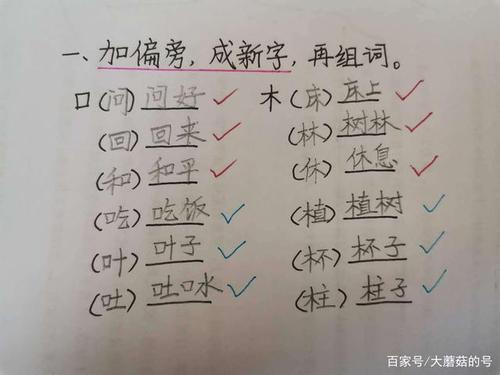 一、加偏旁，成新字，再组词。
口(问) 问好 木(床) 床上
(回) 回来 (林) 树林
(和) 和平 (休) 休息
(吃) 吃饭 (植) 植树
(叶) 叶子 (杯) 杯子
(吐) 吐口水 (柱) 柱子
百家号/大蘑菇的号